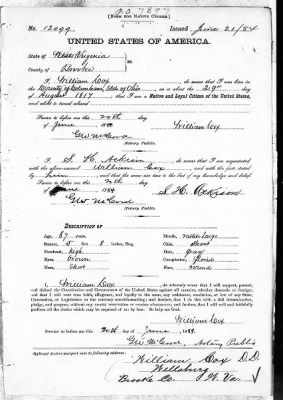 [FORM FOR NATIVE CITIZEN.]
No. 12099 Issued June 21/84
UNITED STATES OF AMERICA.
State of West Virginia
County of Brooke
I, William Cox, do swear that I was born in
the County of Columbiana, State of Ohio, on or about the 29th day
of August 1817, that I am a Native and Loyal Citizen of the United States,
and about to travel abroad
Sworn to before me this 20th day
of June 1884 William Cox
Notary Public.
I, S. H. Acheson, do swear that I am acquainted
with the above-named William Cox, and with the facts stated by
him, and that the same are true to the best of my knowledge and belief.
Sworn to before me this 20th day
1884 S. H. Acheson
Notary Public.
DESCRIPTION OF
Age: 67 years. Mouth: rather large
Stature: 5 feet 8 inches, Eng. Chin: Short
Forehead: high Hair: gray
Eyes: brown Complexion: florid
Nose: Short Face: round
I, William Cox, do solemnly swear that I will support, protect,
and defend the Constitution and Government of the United States against all enemies, whether domestic or foreign;
and that I will bear true faith, allegiance, and loyalty to the same, any ordinance, resolution, or law of any State,
Convention, or Legislature to the contrary notwithstanding; and further, that I do this with a full determination,
pledge, and purpose, without any mental reservation or evasion whatsoever; and further, that I will well and faithfully
perform all the duties which may be required of me by law. So help me God.
William Cox
Sworn to before me this 20th day of June, 1884.
Notary Public
Applicant desires passport sent to following address:
William Cox D.D.
Wellsburg
Brooke Co. W. Va.